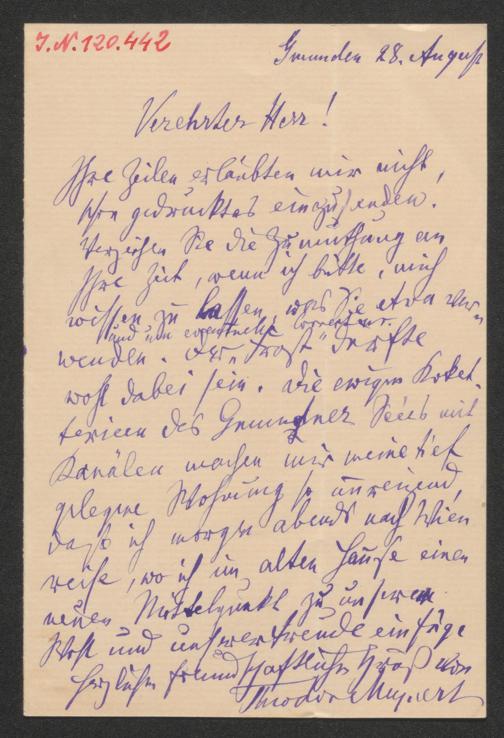 I.N. 120.442
Gmunden 28. August
Verehrter Herr!
Ihre Zeilen erlaubten mir nicht,
schon gedrucktes einzusenden.
Verzeihen Sie die Zumuthung an
Ihre Zeit, wenn ich bitte, mich
wissen zu lassen, was Sie etwa ver=
und um eventuelle Correctur
wenden. Der "Trost" dürfte
wohl dabei sein. Die ewigen Koket-
terieen des Gmundner Sees mit
Kanälen machen mir meine tief
gelegene Wohnung so
daß ich morgen abends nach Wien
reise, wo ich im alten Hause einen
neuen Mittelpunkt zu unserem
Wohl und einfüge
herzlichen freundschaftlichen Gruß von
Theodor Meynert